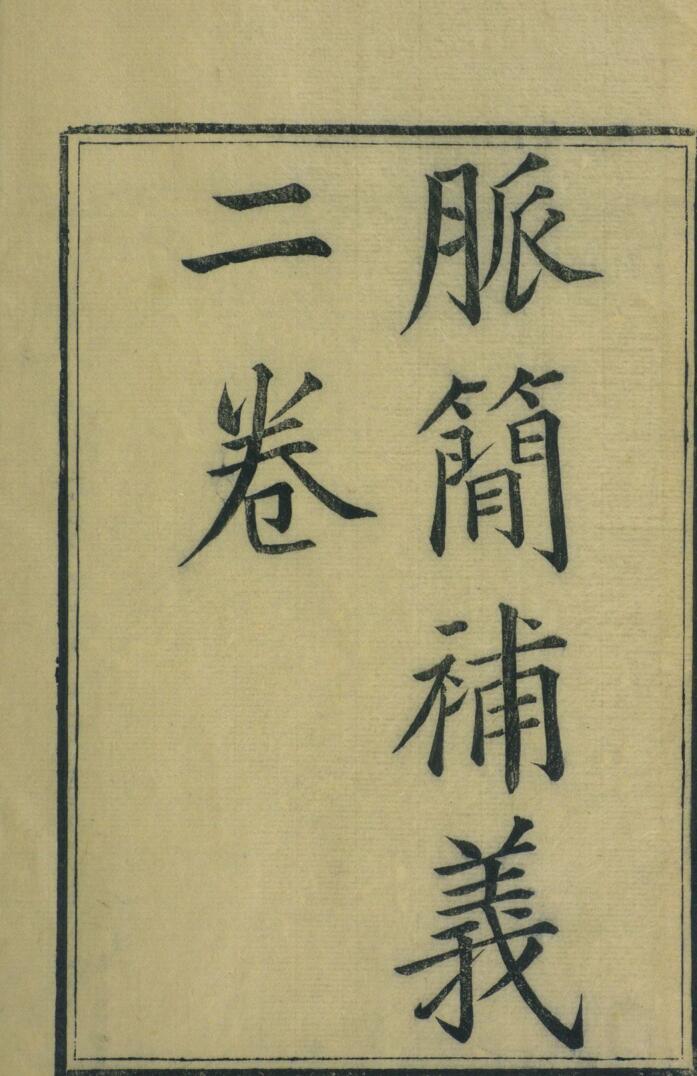 脈簡補義
二卷